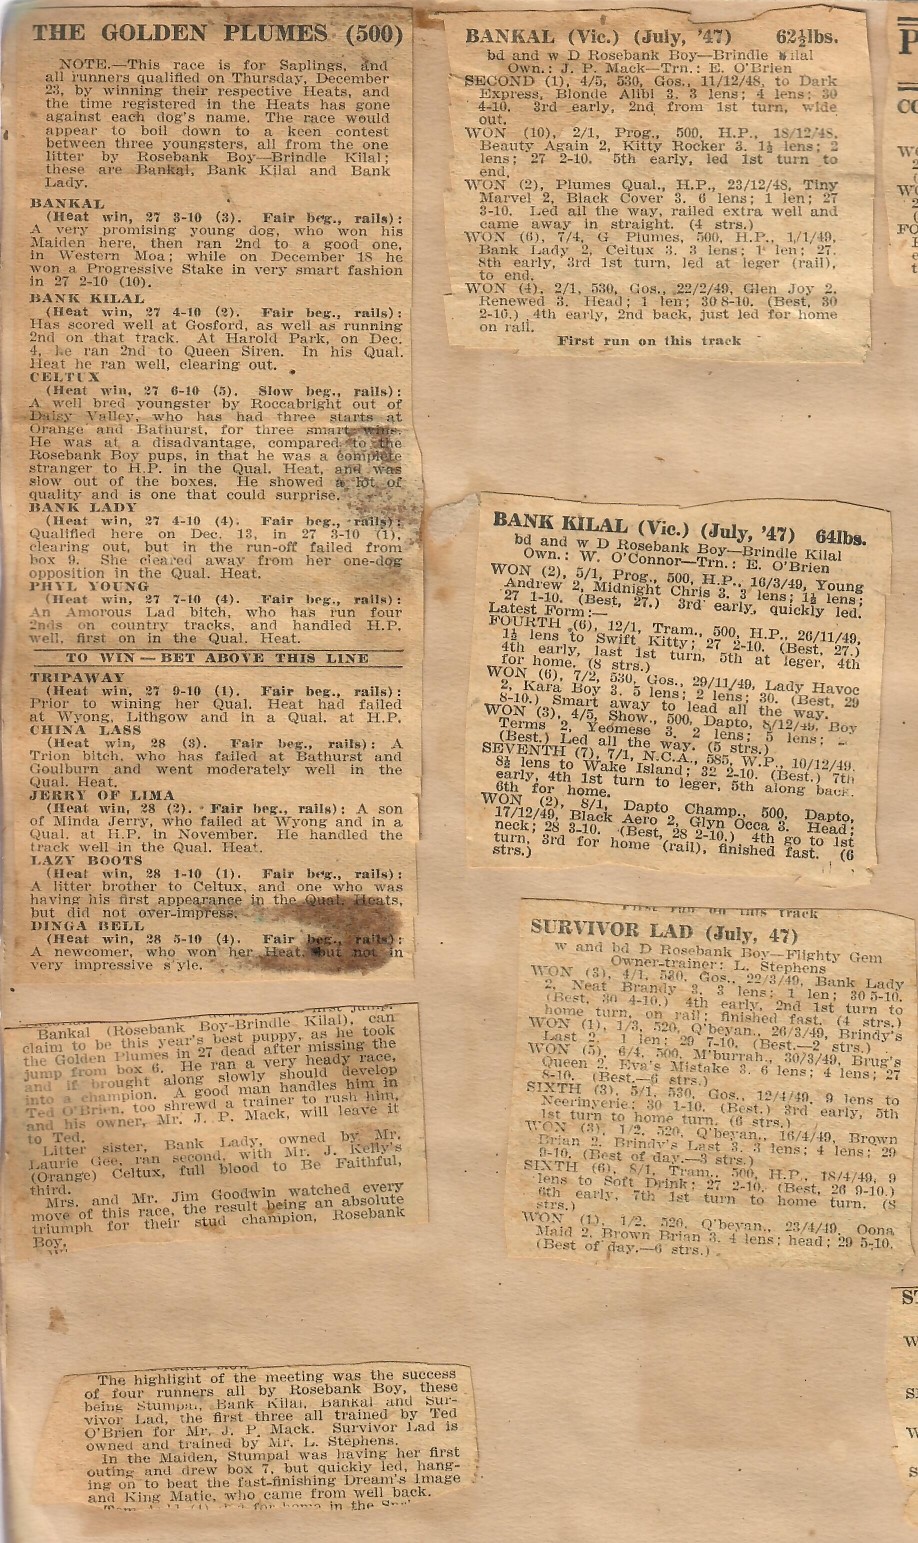 THE GOLDEN PLUMES (500)
NOTE.—This race is for Saplings, and
all runners qualified on Thursday, December
23, by winning their respective Heats, and
the time registered in the Heats has gone
against each dog's name. The race would
appear to boil down to a keen contest
between three youngsters, all from the one
litter by Rosebank Boy—Brindle Kilal;
these are Bankal, Bank Kilal and Bank
Lady.
BANKAL
(Heat win, 27 3-10 (3). Fair beg., rails):
A very promising young dog, who won his
Maiden here, then ran 2nd to a good one,
in Western Moa; while on December 18 he
won a Progressive Stake in very smart fashion
in 27 2-10 (10).
BANK KILAL
(Heat win, 27 4-10 (2). Fair beg., rails):
Has scored well at Gosford, as well as running
2nd on that track. At Harold Park, on Dec.
4, he ran 2nd to Queen Siren. In his Qual.
Heat he ran well, clearing out.
CELTUX
(Heat win, 27 6-10 (5). Slow beg., rails):
A well bred youngster by Roccabright out of
Daisy Valley, who has had three starts at
Orange and Bathurst, for three smart wins.
He was at a disadvantage, compared to the
Rosebank Boy pups, in that he was a complete
stranger to H.P. in the Qual. Heat, and was
slow out of the boxes. He showed a lot of
quality and is one that could surprise.
BANK LADY
(Heat win, 27 4-10 (4). Fair beg., rails):
Qualified here on Dec. 13, in 27 3-10 (1),
clearing out, but in the run-off failed from
box 9. She cleared away from her one-dog
opposition in the Qual. Heat.
PHYL YOUNG
(Heat win, 27 7-10 (4). Fair beg., rails):
An Amorous Lad bitch, who has run four
2nds on country tracks, and handled H.P.
well, first on in the Qual. Heat.
TO WIN — BET ABOVE THIS LINE
TRIPAWAY
(Heat win, 27 9-10 (1). Fair beg., rails):
Prior to wining her Qual. Heat had failed
at Wyong, Lithgow and in a Qual. at H.P.
CHINA LASS
(Heat win, 28 (3). Fair beg., rails): A
Trion bitch, who has failed at Bathurst and
Goulburn and went moderately well in the
Qual. Heat.
JERRY OF LIMA
(Heat win, 28 (2). Fair beg., rails): A son
of Minda Jerry, who failed at Wyong and in a
Qual. at H.P. in November. He handled the
track well in the Qual. Heat.
LAZY BOOTS
(Heat win, 28 1-10 (1). Fair beg., rails):
A litter brother to Celtux, and one who was
having his first appearance in the Qual. Heats,
but did not over-impress.
DINGA BELL
(Heat win, 28 5-10 (4). Fair beg., rails):
A newcomer, who won her Heat, but not in
very impressive style.
Bankal (Rosebank Boy-Brindle Kilal), can
claim to be this year's best puppy, as he took
the Golden Plumes in 27 dead after missing the
jump from box 6. He ran a very heady race,
and if brought along slowly should develop
into a champion. A good man handles him in
Ted O'Brien, too shrewd a trainer to rush him,
and his owner, Mr. J. P. Mack, will leave it
to Ted.
Litter sister, Bank Lady, owned by Mr.
Laurie Gee, ran second, with Mr. J. Kelly's
(Orange) Celtux, full blood to Be Faithful,
third.
Mrs. and Mr. Jim Goodwin watched every
move of this race, the result being an absolute
triumph for their stud champion, Rosebank
Boy.
The highlight of the meeting was the success
of four runners all by Rosebank Boy, these
being Stumpal, Bank Kilal, Bankal and Sur-
vivor Lad, the first three all trained by Ted
O'Brien for Mr. J. P. Mack. Survivor Lad is
owned and trained by Mr. L. Stephens.
In the Maiden, Stumpal was having her first
outing and drew box 7, but quickly led, hang-
ing on to beat the fast-finishing Dream's Image
and King Matic, who came from well back.
BANKAL (Vic.) (July, '47) 62½lbs.
bd and w D Rosebank Boy—Brindle Kilal
Own.: J. P. Mack—Trn.: E. O'Brien
SECOND (1), 4/5, 530, Gos., 11/12/48, to Dark
Express, Blonde Alibi 3. 3 lens; 4 lens; 30
4-10. 3rd early, 2nd from 1st turn, wide
out.
WON (10), 2/1, Prog., 500, H.P., 18/12/48,
Beauty Again 2, Kitty Rocker 3. 1½ lens; 2
lens; 27 2-10. 5th early, led 1st turn to
end.
WON (2), Plumes Qual., H.P., 23/12/48, Tiny
Marvel 2, Black Cover 3. 6 lens; 1 len; 27
3-10. Led all the way, railed extra well and
came away in straight. (4 strs.)
WON (6), 7/4, G Plumes, 500, H.P., 1/1/49,
Bank Lady 2, Celtux 3. 3 lens; 1 len; 27.
8th early, 3rd 1st turn, led at leger (rail),
to end.
WON (4), 2/1, 530, Gos., 22/2/49, Glen Joy 2,
Renewed 3. Head; 1 len; 30 8-10. (Best, 30
2-10.) 4th early, 2nd back, just led for home
on rail.
First run on this track
BANK KILAL (Vic.) (July, '47) 64lbs.
bd and w D Rosebank Boy—Brindle Kilal
Own.: W. O'Connor—Trn.: E. O'Brien
WON (2), 5/1, Prog., 500, H.P., 16/3/49, Young
Andrew 2, Midnight Chris 3. 3 lens; 1½ lens;
27 1-10. (Best, 27.) 3rd early, quickly led.
Latest Form:—
FOURTH (6), 12/1, Tram., 500, H.P., 26/11/49,
1½ lens to Swift Kitty; 27 2-10. (Best, 27.)
4th early, last 1st turn, 5th at leger, 4th
for home, (8 strs.)
WON (6), 7/2, 530, Gos., 29/11/49, Lady Havoc
2, Kara Boy 3. 5 lens; 2 lens; 30. (Best, 29
8-10.) Smart away to lead all the way.
WON (3), 4/5, Show., 500, Dapto, 8/12/49, Boy
Terms 2, Yeomese 3. 2 lens; 5 lens;
(Best.) Led all the way. (5 strs.)
SEVENTH (7), 7/1, N.C.A., 585, W.P., 10/12/49,
8½ lens to Wake Island; 32 2-10. (Best.) 7th
early, 4th 1st turn to leger, 5th along back,
6th for home.
WON (2), 8/1, Dapto Champ., 500, Dapto,
17/12/49, Black Aero 2, Glyn Occa 3. Head;
neck; 28 3-10. (Best, 28 2-10.) 4th go to 1st
turn, 3rd for home (rail), finished fast. (6
strs.)
First run on this track
SURVIVOR LAD (July, 47)
w and bd D Rosebank Boy—Flighty Gem
Owner-trainer: L. Stephens
WON (3), 4/1, 530, Gos., 22/3/49, Bank Lady
2, Neat Brandy 3. 3 lens; 1 len; 30 5-10.
(Best, 30 4-10.) 4th early, 2nd 1st turn to
home turn, on rail; finished fast. (4 strs.)
WON (1), 1/3, 520, Q'beyan., 26/3/49, Brindy's
Last 2. 1 len; 29 7-10. (Best.—2 strs.)
WON (5), 6/4, 500, M'burrah., 30/3/49, Brug's
Queen 2, Eva's Mistake 3. 6 lens; 4 lens; 27
8-10. (Best.—6 strs.)
SIXTH (3), 5/1, 530, Gos., 12/4/49, 9 lens to
Neerinyerie; 30 1-10. (Best.) 3rd early, 5th
1st turn to home turn. (6 strs.)
WON (3), 1/2, 520, Q'beyan., 16/4/49, Brown
Brian 2, Brindy's Last 3. 3 lens; 4 lens; 29
9-10. (Best of day.—3 strs.)
SIXTH (6), 8/1, Tram., 500, H.P., 18/4/49, 9
lens to Soft Drink; 27 2-10. (Best, 26 9-10.)
6th early, 7th 1st turn to home turn. (8
strs.)
WON (1), 1/2, 520, Q'beyan., 23/4/49, Oona
Maid 2, Brown Brian 3. 4 lens; head; 29 5-10.
(Best of day.—6 strs.)